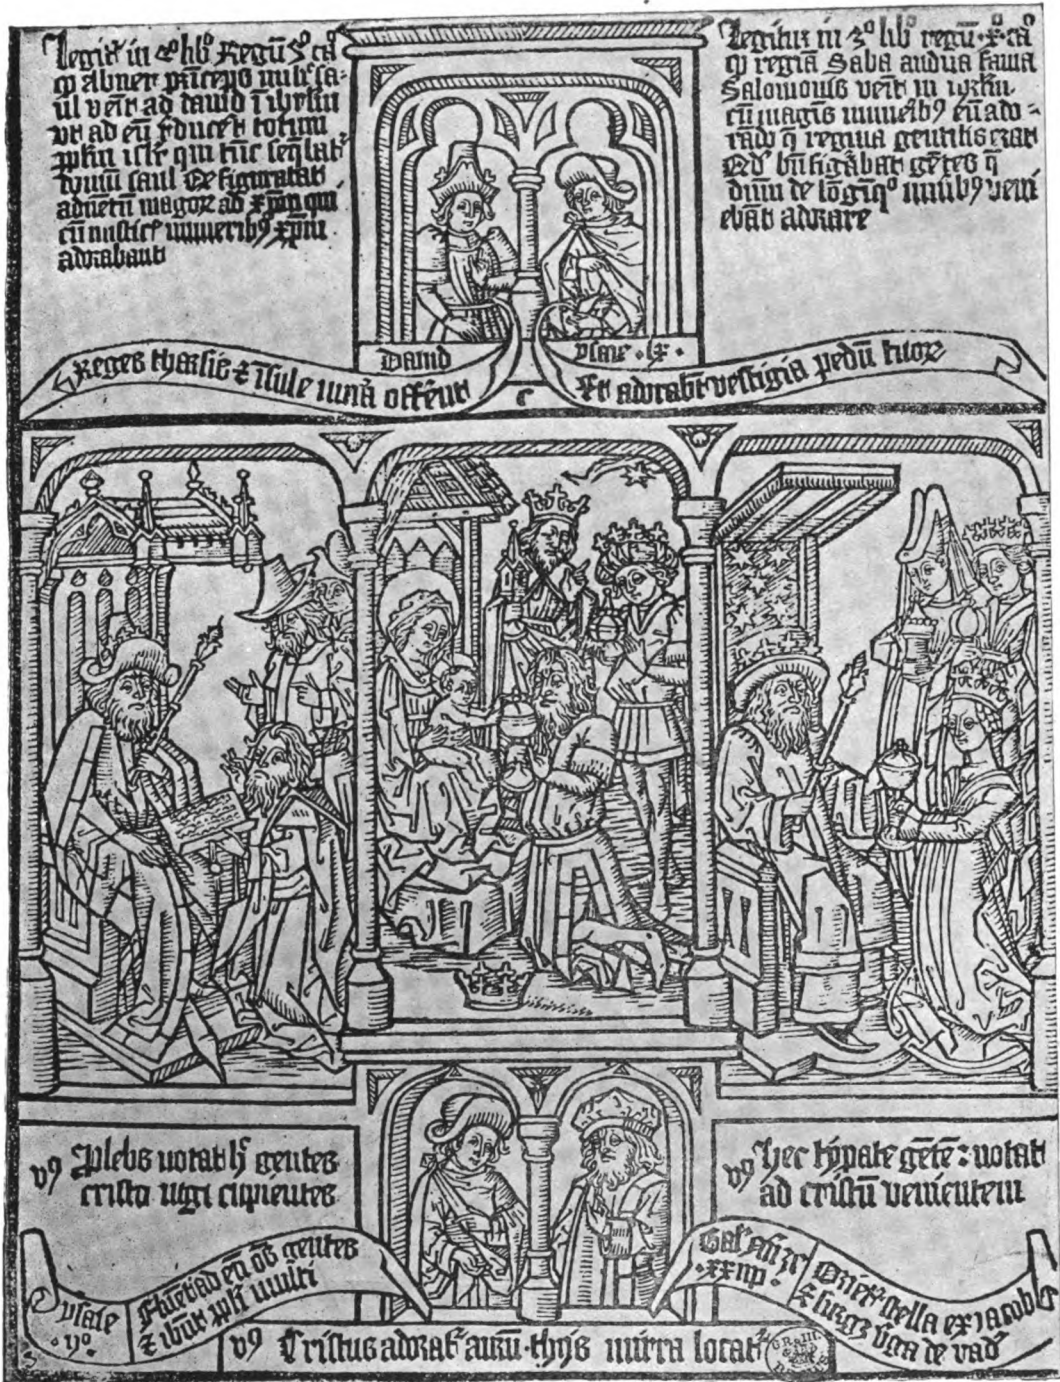 Legit in 2º lib Regū 3º ca
q abner princeps milis sa-
ul venit ad david ī ihrlm
ut ad eū reduceret totum
pplm isrl qui tūc seqbat
domū saul Qe figurabat
advētū magoꝝ ad xpm qui
cū misticis muneribꝫ xpm
adorabant
Legitur in 3º lib regū x ca
q regina Saba audita fama
Salomonis venit in ihrlm
cū magnis muneribꝫ eū ado-
rādo q regina gentilis erat
Qd bn figabat gētes q
dnm de lōginqº munibꝫ veni
ebāt adorare
David
ysaie · lx ·
Reges tharsis ⁊ isule mun̄a offerut
Et adorabūt vestigia pedū tuoꝝ
c
vꝰ Plebs notat h gentes
cristo iūgi cupientes
vꝰ Hec typate gētē notat
ad cristū venientem
ysaie
· ijº ·
Fluēt ad eū ōs gentes
⁊ ibūt ppli multi
· xxiiij ·
Oriet stella ex iacob
⁊ surgꝫ vga de
vꝰ Cristus adorat aurū · thus mirra locat